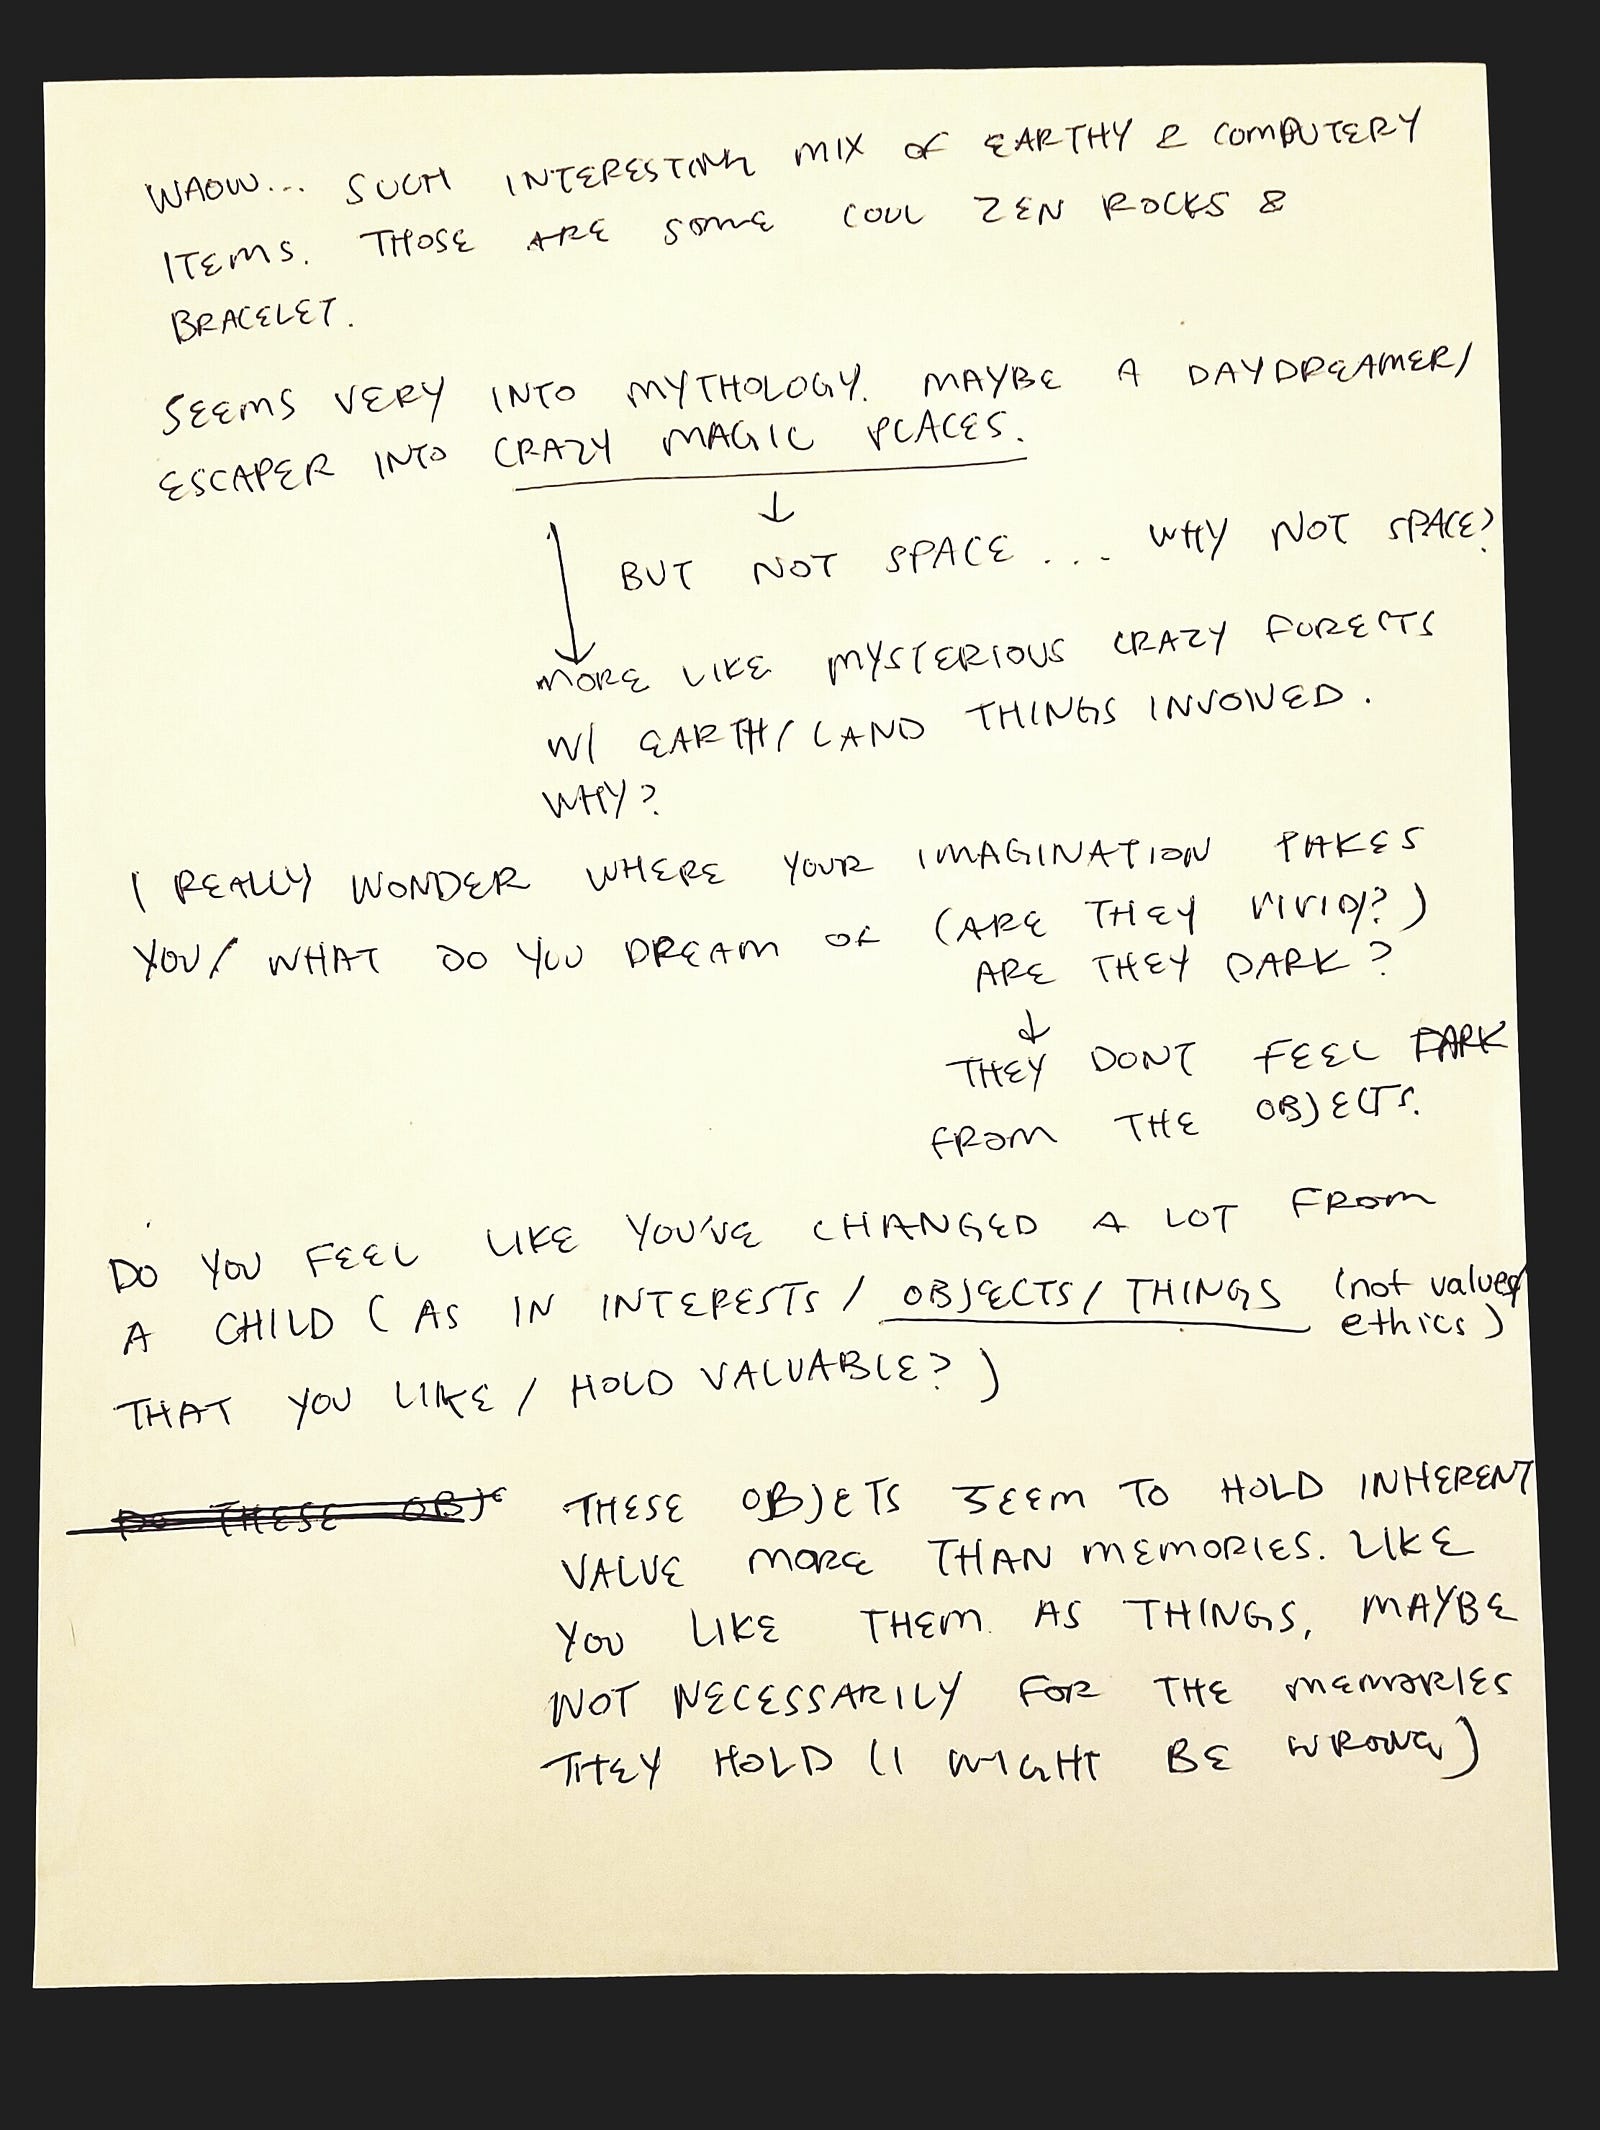 WAOW... SUCH INTERESTING MIX OF EARTHY & COMPUTERY
ITEMS. THOSE ARE SOME COOL ZEN ROCKS &
BRACELET.
SEEMS VERY INTO MYTHOLOGY. MAYBE A DAYDREAMER/
ESCAPER INTO CRAZY MAGIC PLACES.
↓
BUT NOT SPACE .... WHY NOT SPACE?
↓
MORE LIKE MYSTERIOUS CRAZY FORESTS
W/ EARTH/LAND THINGS INVOLVED.
WHY?
I REALLY WONDER WHERE YOUR IMAGINATION TAKES
YOU/ WHAT DO YOU DREAM OF (ARE THEY VIVID?)
ARE THEY DARK?
↓
THEY DONT FEEL DARK
FROM THE OBJECTS.
DO YOU FEEL LIKE YOU'VE CHANGED A LOT FROM
A CHILD (AS IN INTERESTS / OBJECTS/ THINGS (not values/
ethics)
THAT YOU LIKE / HOLD VALUABLE?)
DO THESE OBJE THESE OBJETS SEEM TO HOLD INHERENT
VALUE MORE THAN MEMORIES. LIKE
YOU LIKE THEM AS THINGS, MAYBE
NOT NECESSARILY FOR THE MEMORIES
THEY HOLD (I MIGHT BE WRONG)